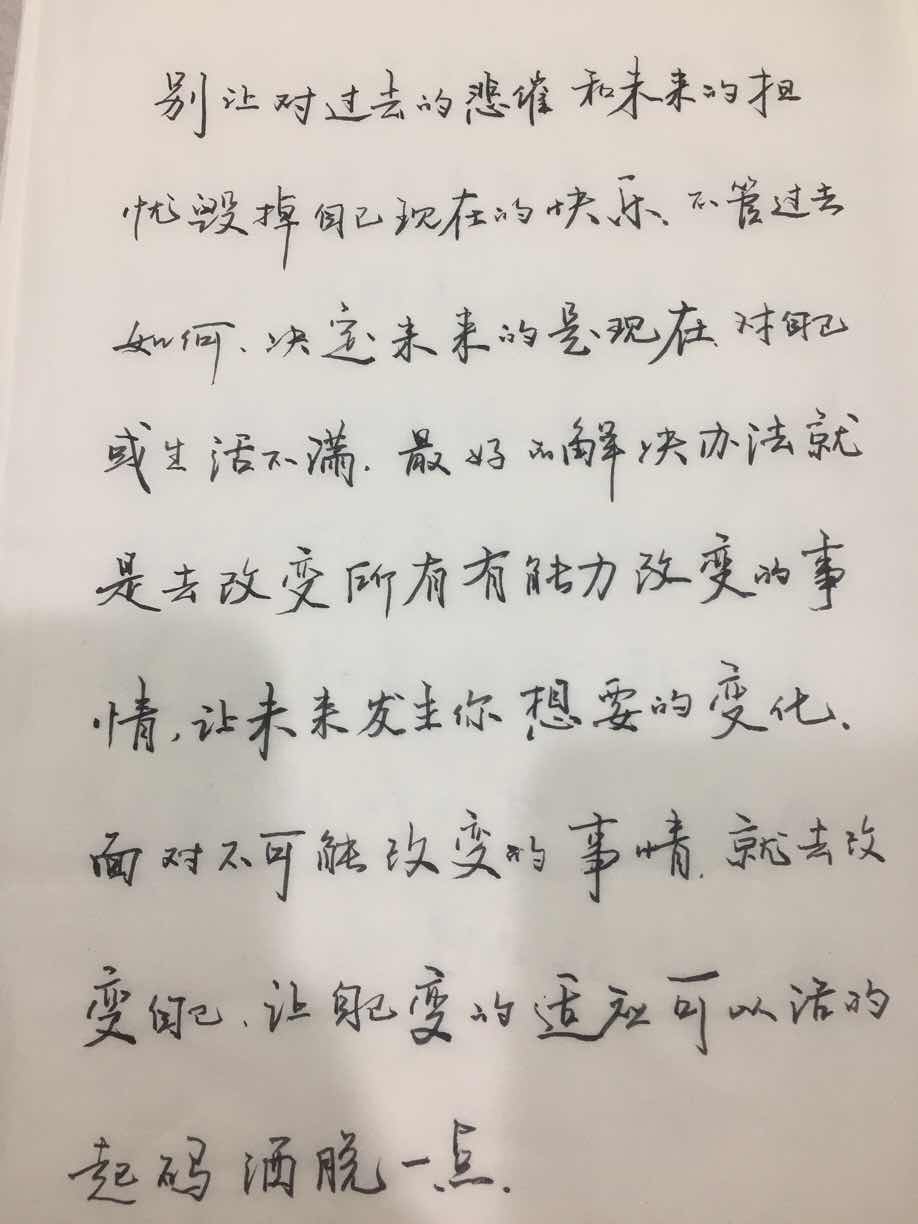 别让对过去的悲催和未来的担
忧毁掉自己现在的快乐、不管过去
如何、决定未来的是现在、对自己
或生活不满、最好的解决办法就
是去改变所有有能力改变的事
情,让未来发生你想要的变化、
面对不可能改变的事情、就去改
变自己、让自己变的适应可以活的
起码洒脱一点、